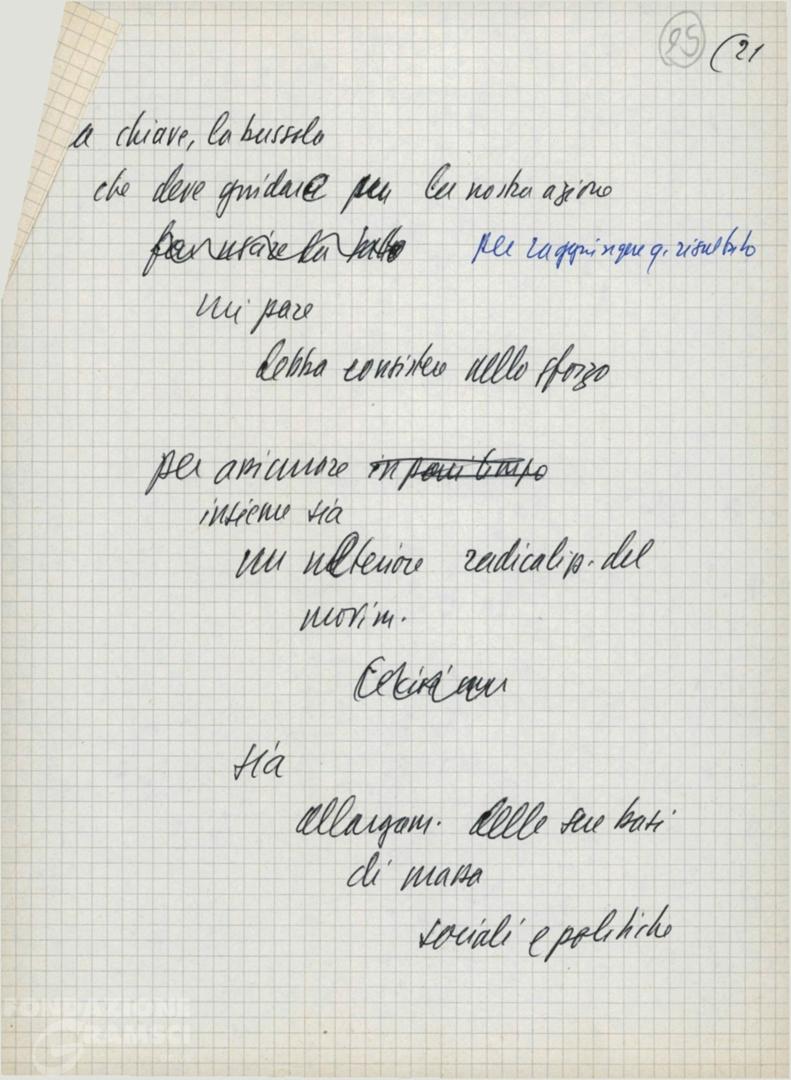 25 (21
a chiave, la bussola
che deve guidare per la nostra azione
per raggiungere q. risultato
mi pare
debba consistere nello sforzo
per assicurare in pari tempo
insieme sia
un ulteriore radicaliz. del
movim.
sia
allargam. delle sue basi
di massa
sociali e politiche
FONDAZIONE
GRAMSCI